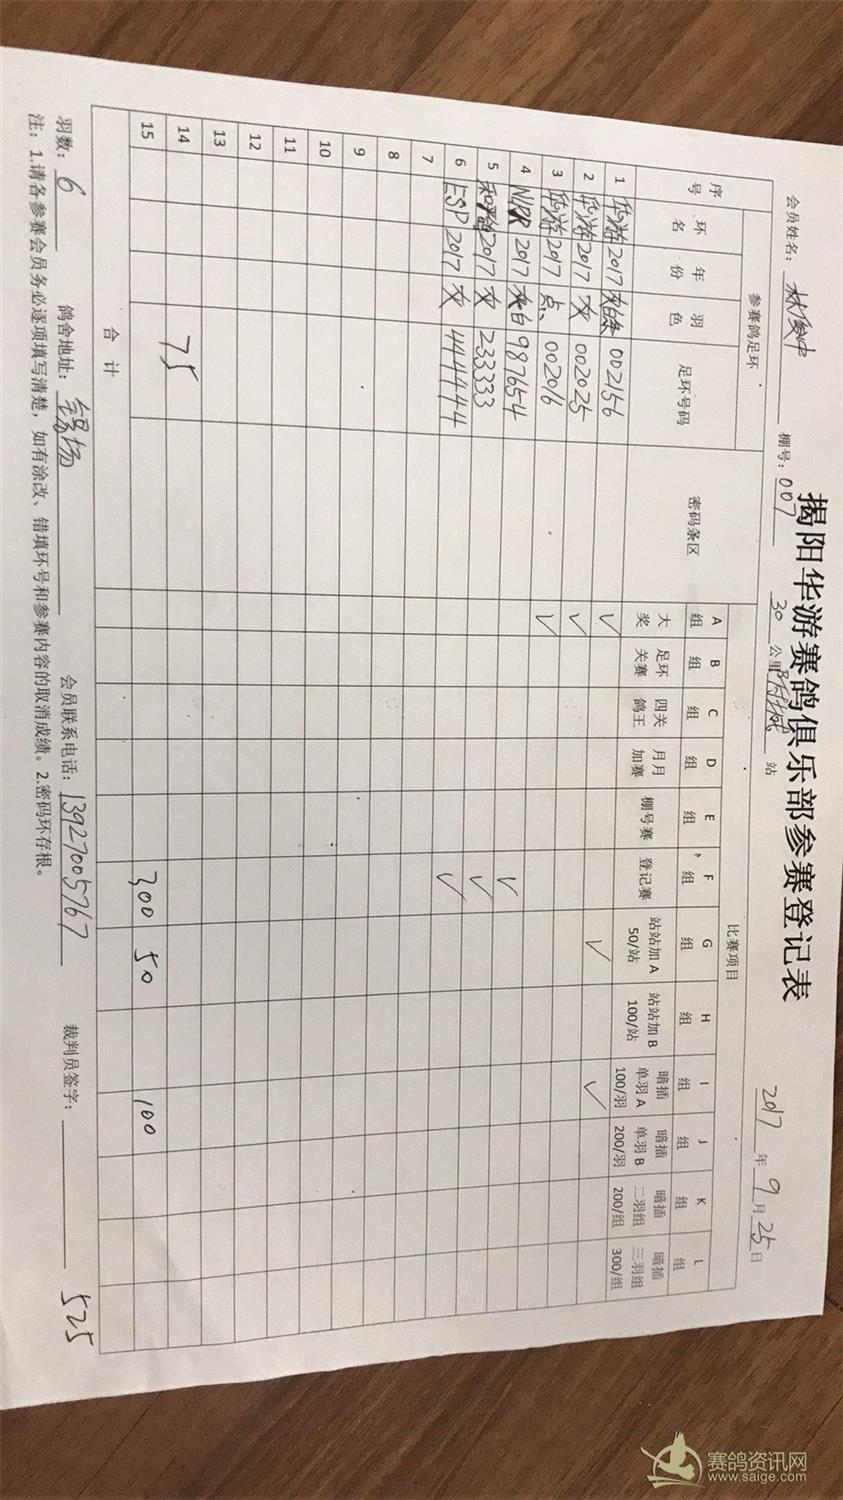 揭阳华游赛鸽俱乐部参赛登记表
会员姓名：林俊中 棚号：007 30 公里 站 2017 年 9 月 25 日
序号 参赛鸽足环 密码条区 比赛项目
环名 年份 羽色 足环号码 A组 B组 C组 D组 E组 F组 G组 H组 I组 J组 K组 L组
大奖 足环关赛 四关鸽王 月月加赛 棚号赛 登记赛 站站加A 50/站 站站加B 100/站 暗插单羽A 100/羽 暗插单羽B 200/羽 暗插二羽组 200/组 暗插三羽组 300/组
1 华游 2017 002156 ✓
2 华游 2017 灰 002025 ✓ ✓ ✓
3 华游 2017 点 002016 ✓
4 2017 987654 ✓
5 2017 灰 233333 ✓
6 ESP 2017 灰 444444 ✓
7
8
9
10
11
12
13
14 75
15 300 50 100
合计
羽数：6 鸽舍地址：锡场 会员联系电话：13927005767 裁判员签字： 525
注：1.请各参赛会员务必逐项填写清楚，如有涂改、错填环号和参赛内容的取消成绩。2.密码环存根。
赛鸽资讯网
www.saige.com